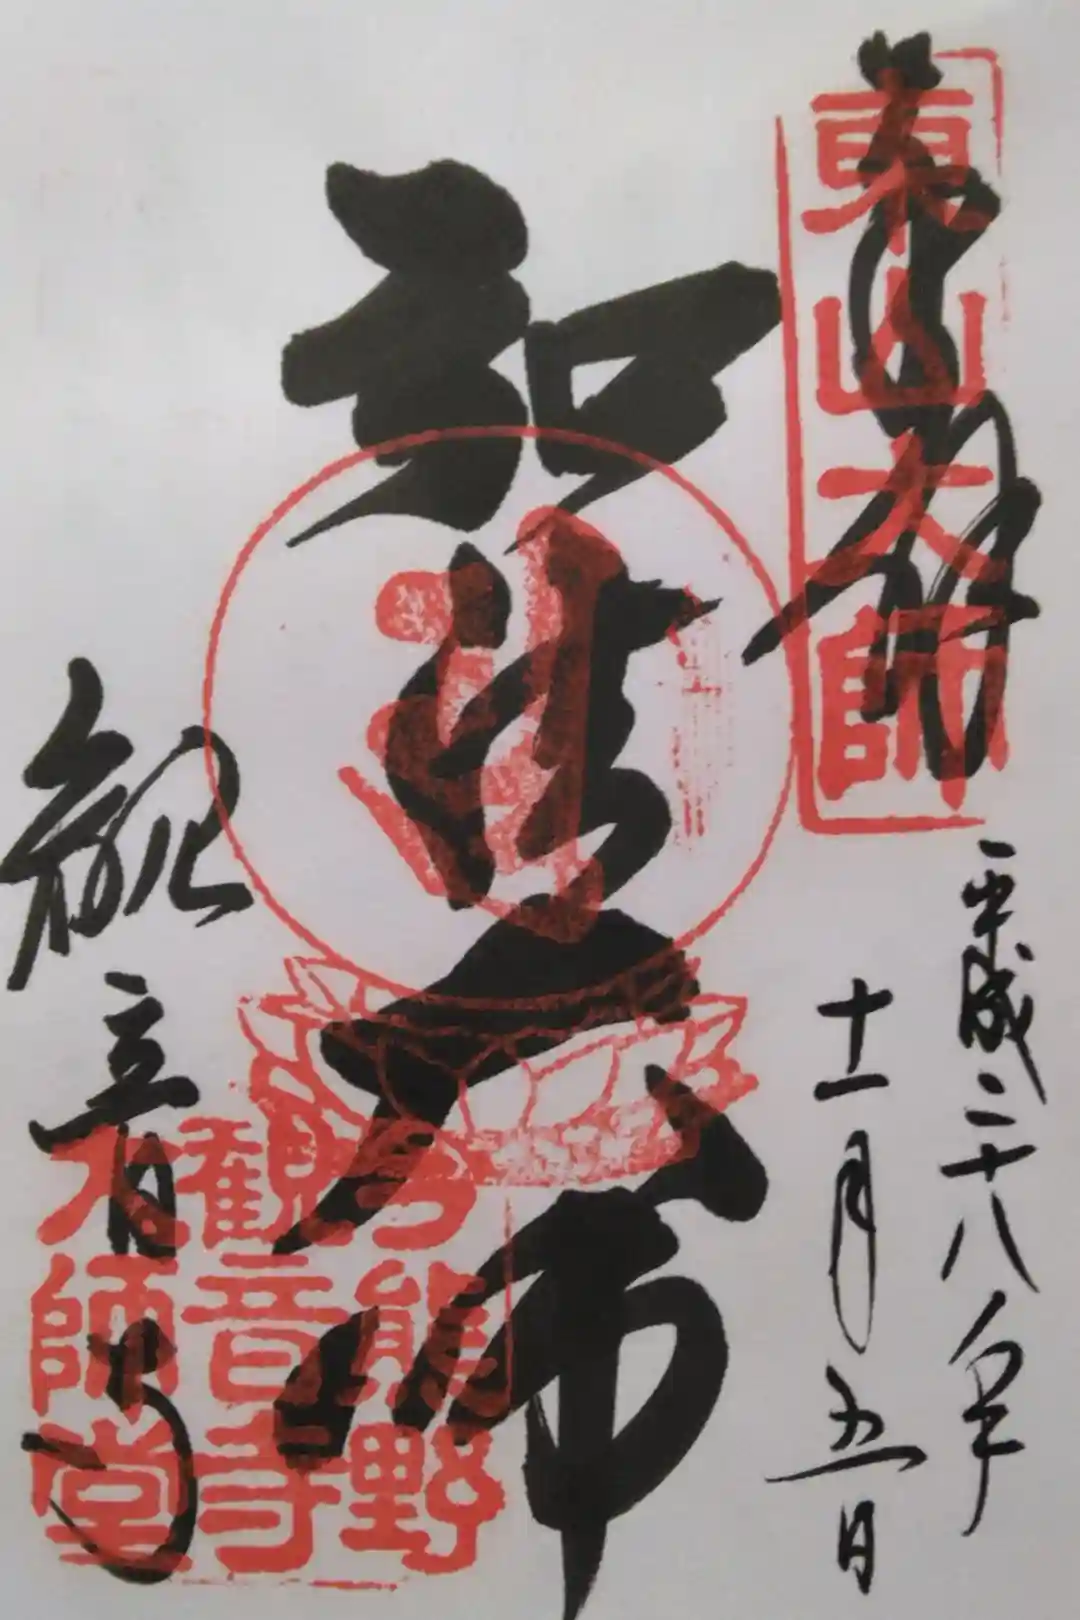 奉拝
東山大師
平成二十八年
十一月五日
弘法大師
観音寺
今熊野
観音寺
大師堂